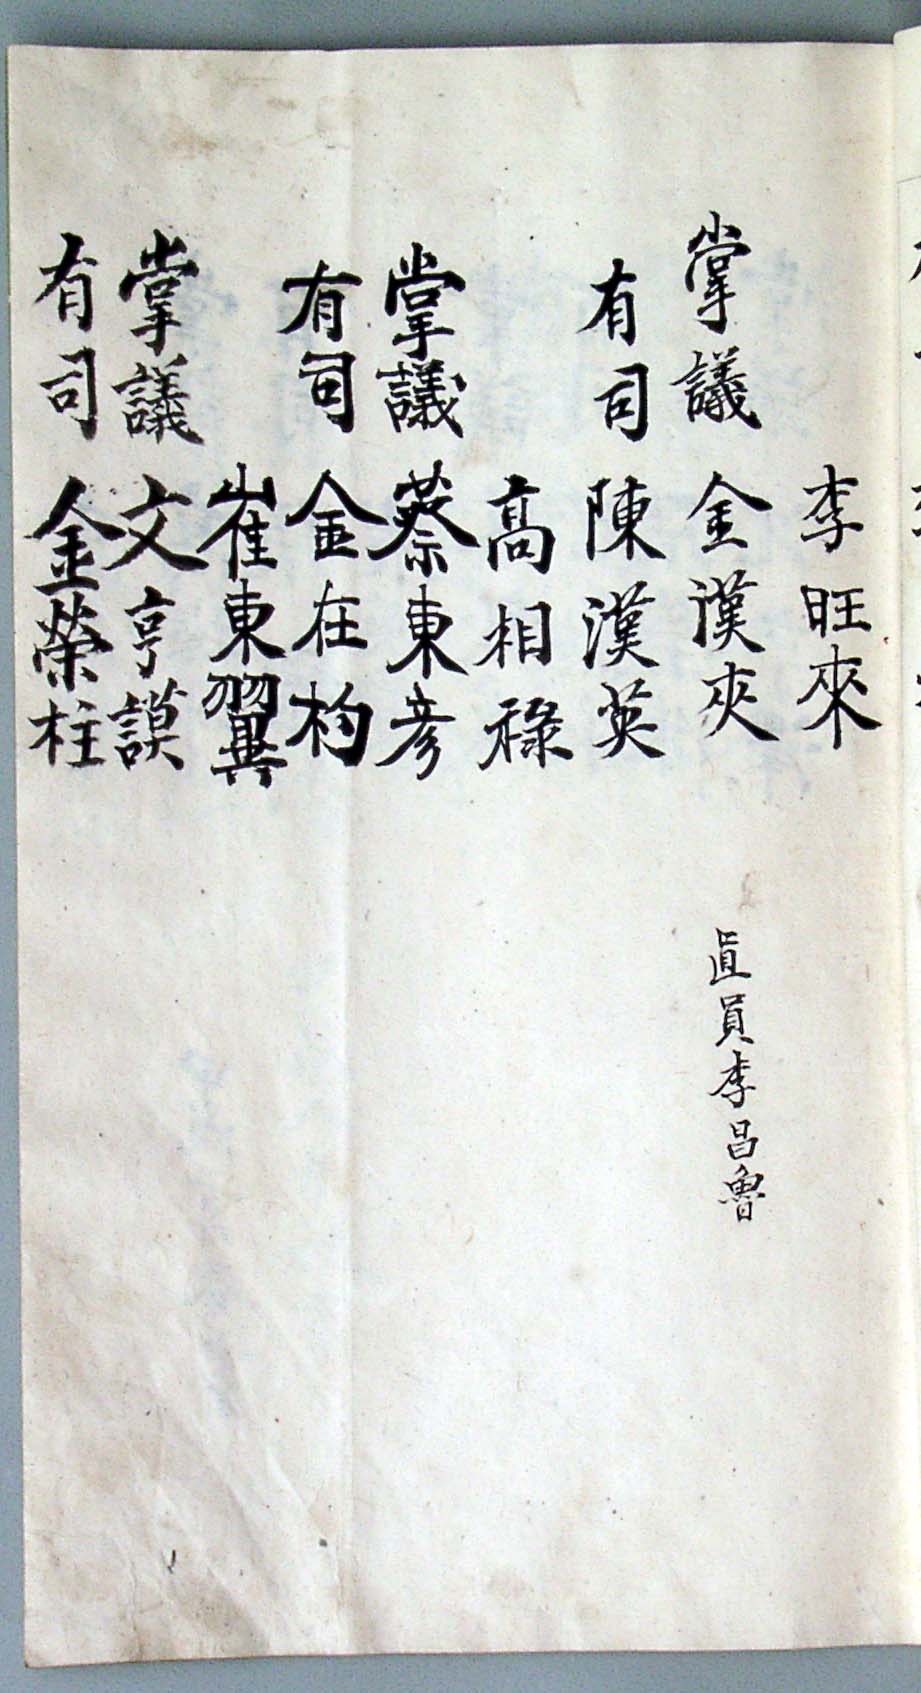 李旺來
掌議 金漢夾
直員李昌魯
有司 陳漢英
高相祿
掌議 蔡東彦
有司 金在杓
崔東翼
掌議 文亨謨
有司 金榮柱